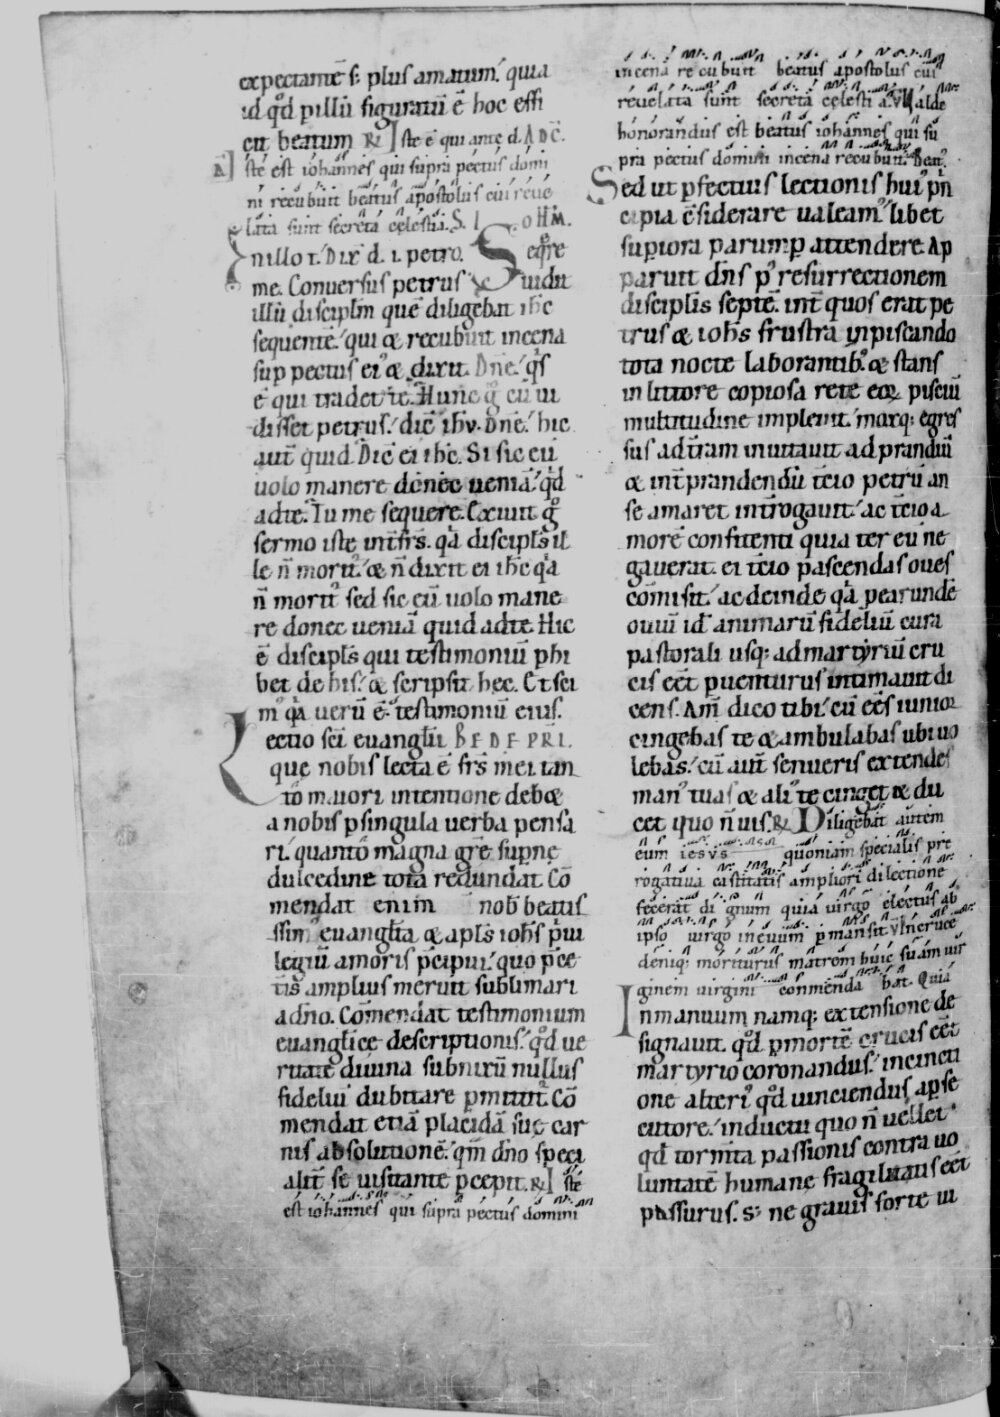 expectantē s; plus amatum. quia
id qd̊ pillū figuratū ē hoc effi
cit beatum R Iste ē qui ante d. ADC.
A Iste est iohannes qui supra pectus domi
ni recubuit beatus apostolus cui reve
lata sunt secreta cęlestia. S. IOHM.
In illo t. Dix̄ d. i. petro. Seq̄re
me. Conversus petrus vidit
illū discipl̄m quē diligebat ihc
sequentē. qui & recubuit in cena
sup pectus ei᾽ & dixit. Dn̄e. q̇s
ē qui tradet te. Hunc g̊ cū vi
disset petrus. dic̄ ihv. Dn̄e. hic
aut̄ quid. Dic̄ ei ihc. Si sic eū
volo manere donec veniā. qd̄
ad te. Tu me sequere. Exivit g̊
sermo iste int̄ frs̄. qa discipls̄ il
le n̄ morit᾽. & n̄ dixit ei ihc qa
n̄ morit᾽ sed sic eū volo mane
re donec veniā quid ad te. Hic
ē discipls̄ qui testimoniū phi
bet de his. & scripsit hec. Et sci
m᾽ qa verū ē testimoniū eius.
Lectio sc̄i evanglii BEDE PRI.
que nobis lecta ē frs̄ mei tan
to maiori intentione deb&
a nobis p singula verba pensa
ri. quanto magna grē supnę
dulcedine tota redundat. Cō
mendat enim nob̄ beatis
sim᾽ evanglta & apls̄ iohs̄ pvi
legiū amoris pcipui. quo pce
tis amplius meruit sublimari
a dn̄o. Cōmendat testimonium
evanglicę descriptionis. qd̊ ve
ritate divina subnixū nullus
fidelium dubitare pmittit᾽. Cō
mendat etiā placidā suę car
nis absolutionē. qm̄ dn̄o speci
alit̄ se visitante pcepit. R Iste
est iohannes qui supra pectus domini
in cena recubuit beatus apostolus cui
revelata sunt secreta cęlestia. V Valde
honorandus est beatus iohannes qui su
pra pectus domini in cena recubuit. Beat᾽.
Sed ut pfectius lectionis hui᾽ pn̄
cipia csiderare valeam᾽. libet
supiora parump attendere. Ap
paruit dn̄s p᾽ resurrectionem
discipl̄is septē. int̄ quos erat pe
trus & iohs̄ frustra in piscando
tota nocte laborantib᾽. & stans
in littore copiosa rete eoR pisciū
multitudine implevit. marq; egres
sus ad t̄ram invitavit ad prandiū
& int̄ prandendū t̄cio petrū an
se amaret int̄rogavit. ac t̄cio a
morē confitenti quia ter eū ne
gaverat. ei t̄cio pascendas oves
cōmisit. ac deinde qa pearundē
oviū id᾽ animarū fidelium cura
pastorali usq; ad martyriū cru
cis eēt pventurus intimavit di
cens. Am̄ dico tibi. cū eēs iunior
cingebas te & ambulabas ubi vo
lebas. cū aut̄ senueris extendes
man᾽ tuas & ali᾽ te cinget & du
cet quo n̄ vis. R Diligebat autem
eum iesus quoniam specialis pre
rogativa castitatis ampliori dilectione
fecerat dignum quia virgo electus ab
ipso virgo in evum pmansit. V In cruce
deniq; moriturus matrem huic suam vir
ginem virgini conmendabat. Quia
In manuum namq; extensione de
signavit. qd̊ p mortē crucis eēt
martyrio coronandus. in cincti
one alteri᾽ qd̊ vinciendus a pse
cutore. in ductu quo n̄ vellet
qd̊ torm̄ta passionis contra vo
luntatē humanę fragilitatis eēt
passurus. S; ne gravis forte vi